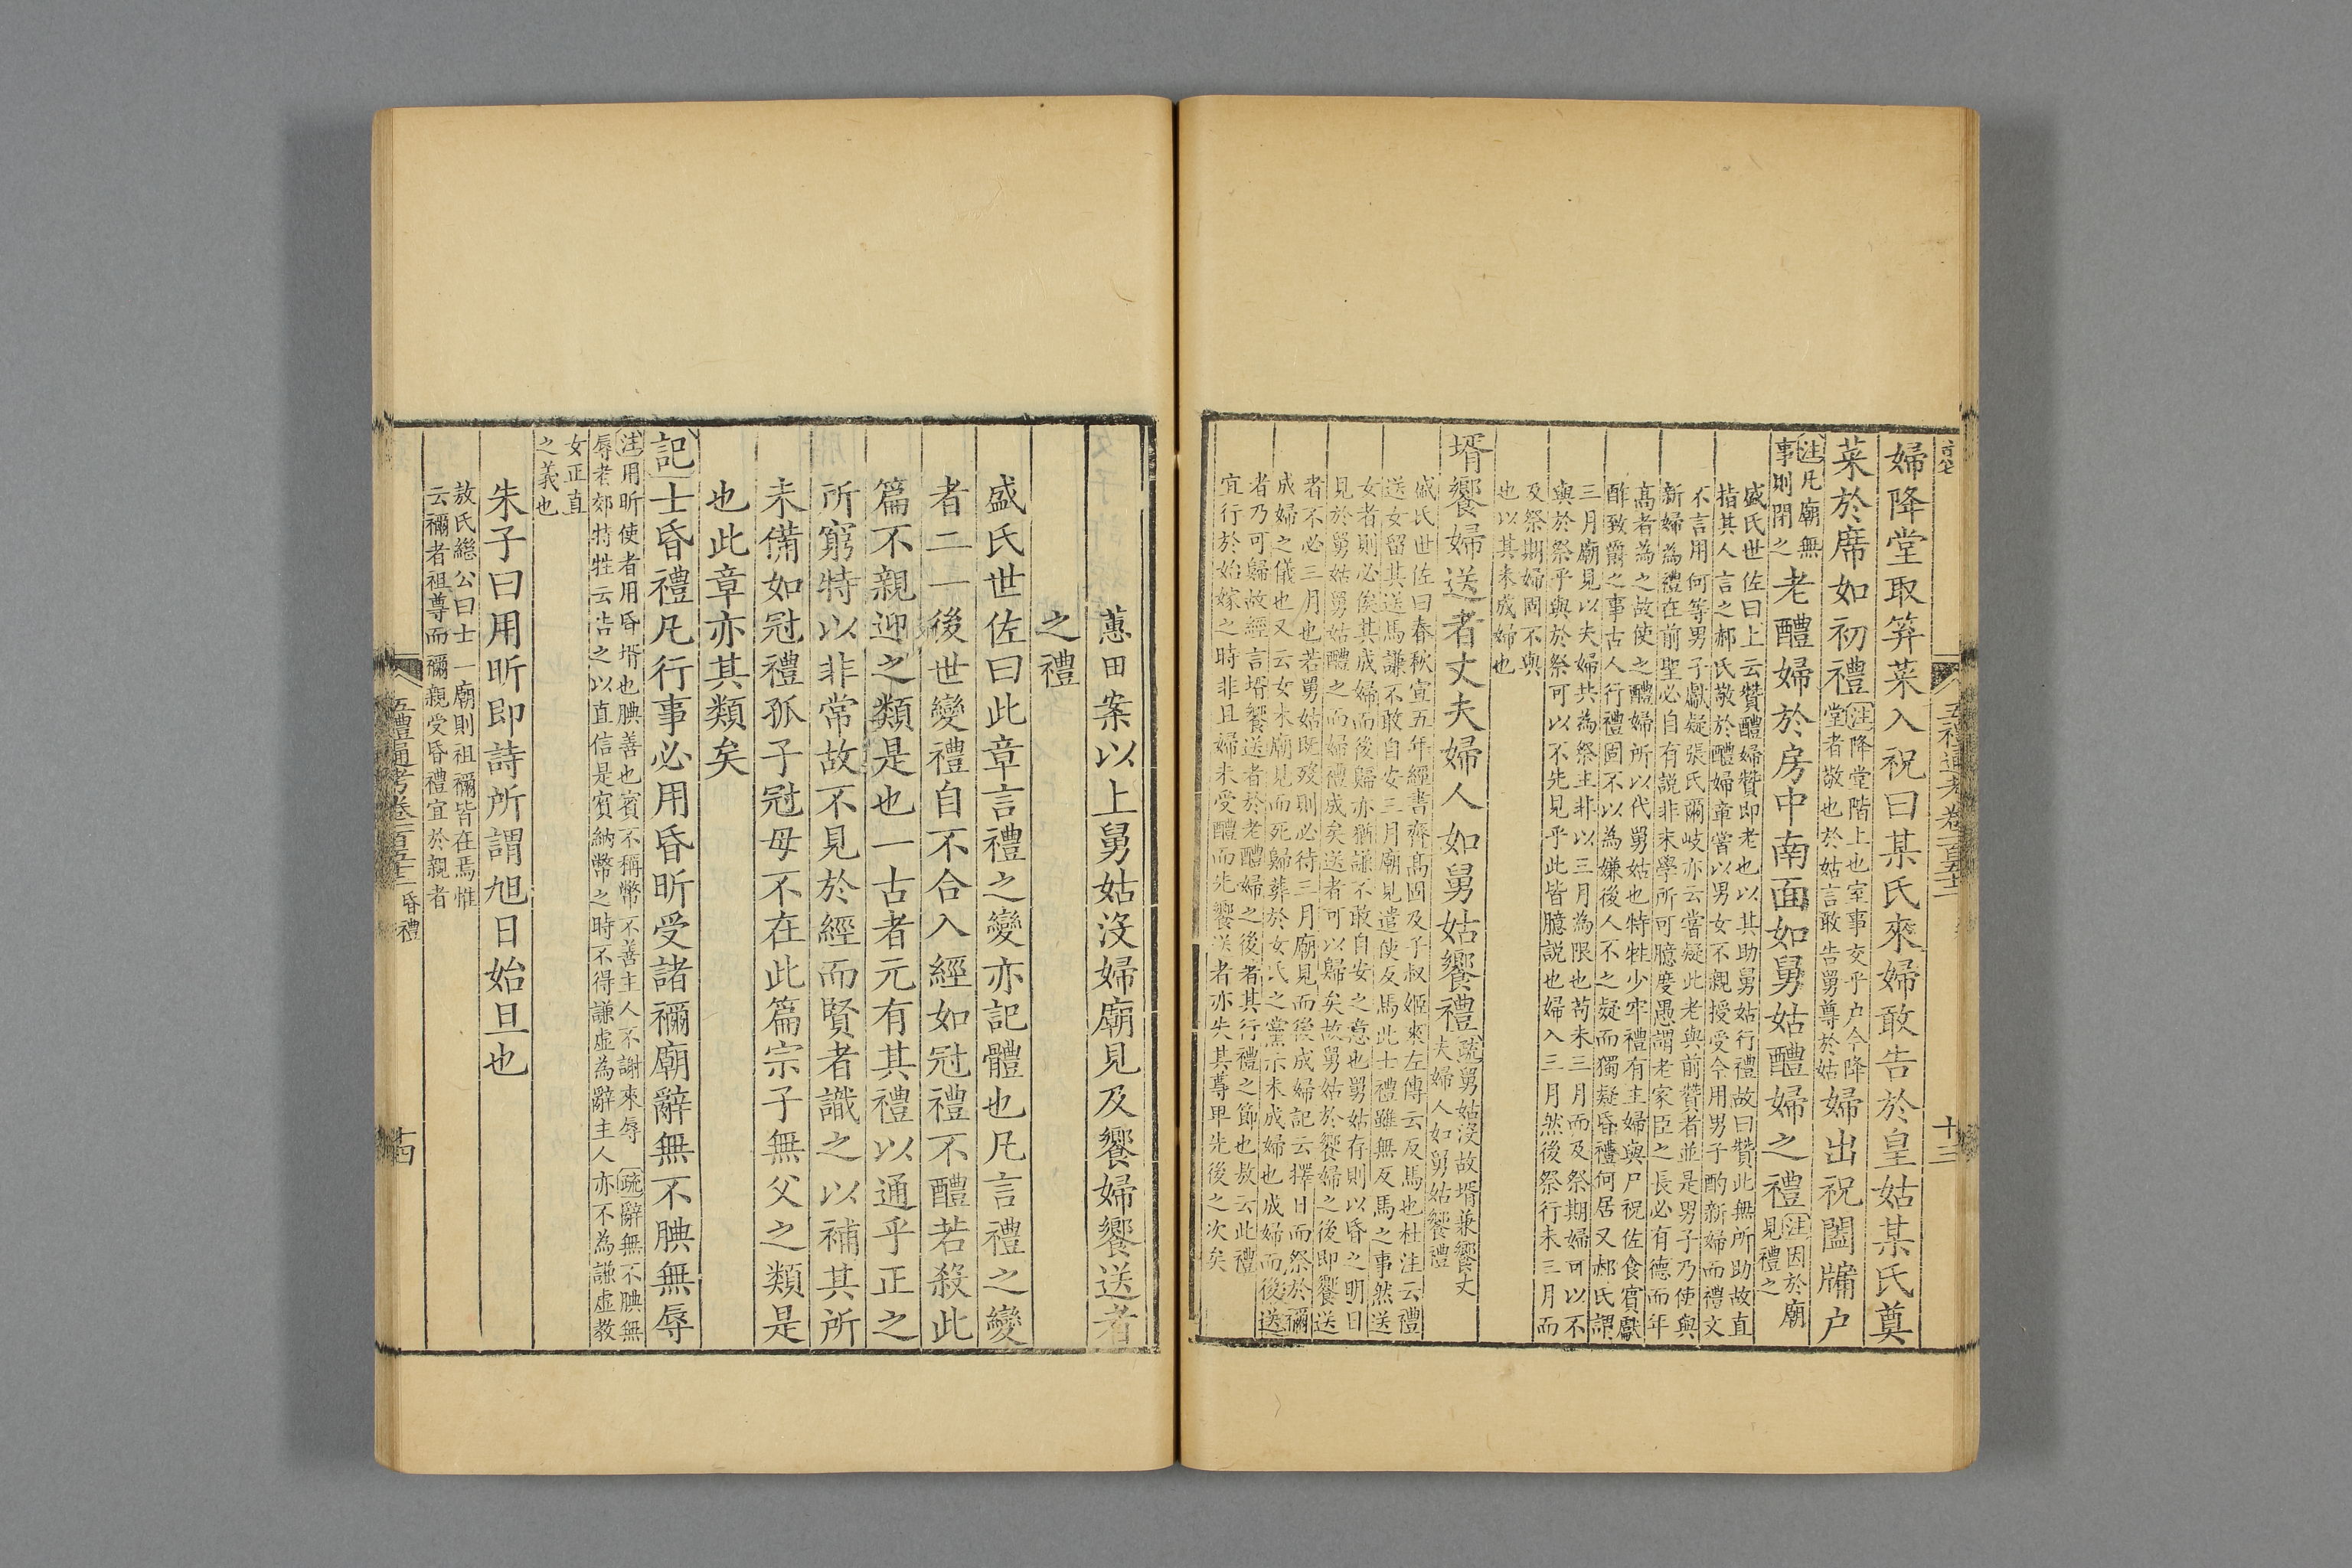 婦降堂取笲菜入祝曰某氏來婦敢告於皇姑某氏奠
菜於席如初禮
注降堂階上也室事交乎户今降
堂者敬也於姑言敢告舅尊於姑
婦出祝闔牖户
注凡廟無
事則閉之
老醴婦於房中南面如舅姑醴婦之禮
注因於廟
見禮之
盛氏世佐曰上云贊醴婦贊即老也以其助舅姑行禮故曰贊此無所助故直
指其人言之郝氏敬於醴婦章嘗以男女不親授受令用男子酌新婦而禮文
不言用何等男子獻疑張氏爾岐亦云當疑此老與前贊者並是男子乃使與
新婦為禮在前聖必自有説非末學所可臆度愚謂老家臣之長必有德而年
髙者為之故使之醴婦所以代舅姑也特牲少牢禮有主婦與尸祝佐食賓獻
酢致爵之事古人行禮固不以為嫌後人不之疑而獨疑昏禮何居又郝氏謂
三月廟見以夫婦共為祭主非以三月為限也苟未三月而及祭期婦可以不
與於祭乎與於祭可以不先見乎此皆臆説也婦入三月然後祭行未三月而
及祭期婦固不與
也以其未成婦也
壻饗婦送者丈夫婦人如舅姑饗禮
疏舅姑沒故壻兼饗丈
夫婦人如舅姑饗禮
盛氏世佐曰春秋宣五年經書齊髙固及子叔姬來左傳云反馬也杜注云禮
送女留其送馬謙不敢自安三月廟見遣使反馬此士禮雖無反馬之事然送
女者則必俟其成婦而後歸亦猶謙不敢自安之意也舅姑存則以昏之明日
見於舅姑舅姑醴之而婦禮成矣送者可以歸矣故舅姑於饗婦之後即饗送
者不必三月也若舅姑既殁則必待三月廟見而後成婦記云擇日而祭於禰
成婦之儀也又云女未廟見而死歸葬於女氏之黨示未成婦也成婦而後送
者乃可歸故經言壻饗送者於老醴婦之後者其行禮之節也敖云此禮
宜行於始嫁之時非且婦未受醴而先饗送者亦失其尊卑先後之次矣
五禮通考卷一百五十二
十三
蕙田案以上舅姑沒婦廟見及饗婦饗送者
之禮
盛氏世佐曰此章言禮之變亦記體也凡言禮之變
者二一後世變禮自不合入經如冠禮不醴若殺此
篇不親迎之類是也一古者元有其禮以通乎正之
所窮特以非常故不見於經而賢者識之以補其所
未備如冠禮孤子冠母不在此篇宗子無父之類是
也此章亦其類矣
記士昏禮凡行事必用昏昕受諸禰廟辭無不腆無辱
注用昕使者用昏壻也腆善也賓不稱幣不善主人不謝來辱
疏辭無不腆無
辱者郊特牲云告之以直信是賓納幣之時不得謙虚為辭主人
亦不為謙虚教
女正直
之義也
朱子曰用昕即詩所謂旭日始旦也
敖氏繼公曰士一廟則祖禰皆在焉惟
云禰者祖尊而禰親受昏禮宜於親者
五禮通考卷一百五十二 昏禮
十四